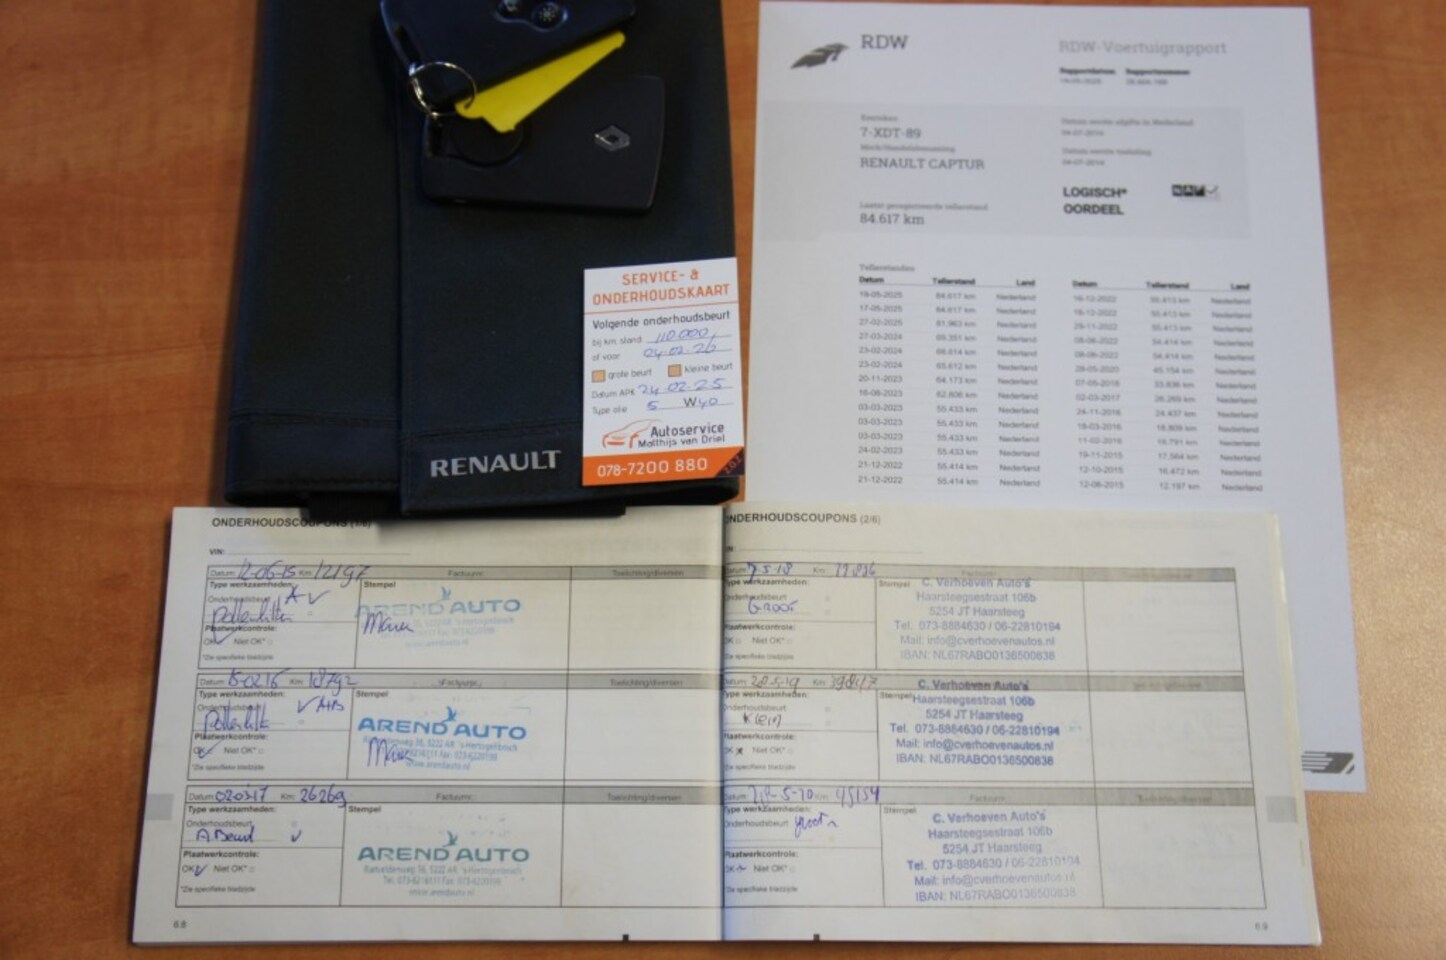 RDW
RDW-Voertuigrapport
Rapportdatum
Rapportnummer
19-05-2025
Kenteken
7-XDT-89
Merk/Handelsbenaming
RENAULT CAPTUR
Datum eerste afgifte in Nederland
04-07-2014
Datum eerste toelating
04-07-2014
Laatst geregistreerde tellerstand
84.617 km
LOGISCH*
OORDEEL
NAP
Tellerstanden
Datum Tellerstand Land Datum Tellerstand Land
19-05-2025 84.617 km Nederland 16-12-2022 55.413 km Nederland
17-05-2025 84.617 km Nederland 16-12-2022 55.413 km Nederland
27-02-2025 81.963 km Nederland 29-11-2022 55.413 km Nederland
27-03-2024 69.391 km Nederland 08-06-2022 54.414 km Nederland
23-02-2024 68.014 km Nederland 08-06-2022 54.414 km Nederland
23-02-2024 65.612 km Nederland 28-05-2020 45.154 km Nederland
20-11-2023 64.173 km Nederland 07-05-2018 33.836 km Nederland
16-08-2023 62.806 km Nederland 02-03-2017 26.269 km Nederland
03-03-2023 55.433 km Nederland 24-11-2016 24.437 km Nederland
03-03-2023 55.433 km Nederland 18-03-2016 18.808 km Nederland
03-03-2023 55.433 km Nederland 11-02-2016 18.791 km Nederland
24-02-2023 55.433 km Nederland 19-11-2015 17.564 km Nederland
21-12-2022 55.414 km Nederland 12-10-2015 16.472 km Nederland
21-12-2022 55.414 km Nederland 12-06-2015 12.197 km Nederland
SERVICE- &
ONDERHOUDSKAART
Volgende onderhoudsbeurt
bij km. stand 110.000,
of voor 04-02-26
grote beurt kleine beurt
Datum APK 24-02-25
Type olie 5 W 40
Autoservice
Matthijs van Driel
078-7200 880
RENAULT
ONDERHOUDSCOUPONS (1/6)
VIN:
Datum: 12-06-15 Km: 12197 Factuurnr: Toelichting/diversen
Type werkzaamheden: Stempel
Onderhoudsbeurt A
Pollenfilter
AREND AUTO
Plaatwerkcontrole:
OK Niet OK*
*Zie specifieke bladzijde
Datum: Km: 18792 Factuurnr: Toelichting/diversen
Type werkzaamheden: Stempel
Onderhoudsbeurt
AREND AUTO
Plaatwerkcontrole:
OK Niet OK*
www.arendauto.nl
*Zie specifieke bladzijde
Datum: 020317 Km: 26269 Factuurnr: Toelichting/diversen
Type werkzaamheden: Stempel
Onderhoudsbeurt
A Beurt
AREND AUTO
Plaatwerkcontrole:
OK Niet OK*
www.arendauto.nl
*Zie specifieke bladzijde
6.8
ONDERHOUDSCOUPONS (2/6)
Datum: 7-5-18 Km: Factuurnr:
Type werkzaamheden: Stempel
Onderhoudsbeurt
GROOT
Plaatwerkcontrole:
OK Niet OK*
*Zie specifieke bladzijde
C. Verhoeven Auto's
Haarsteegsestraat 106b
5254 JT Haarsteeg
Tel. 073-8884630 / 06-22810194
Mail: info@cverhoevenautos.nl
IBAN: NL67RABO0136500838
Datum: 28-5-19 Km:
Type werkzaamheden: Stempel
Onderhoudsbeurt
Klein
Plaatwerkcontrole:
OK Niet OK*
*Zie specifieke bladzijde
C. Verhoeven Auto's
Haarsteegsestraat 106b
5254 JT Haarsteeg
Tel. 073-8884630 / 06-22810194
Mail: info@cverhoevenautos.nl
IBAN: NL67RABO0136500838
Datum: 28-5-20 Km: 45154 Factuurnr: Toelichting/diversen
Type werkzaamheden: Stempel
Onderhoudsbeurt groot
Plaatwerkcontrole:
OK Niet OK*
*Zie specifieke bladzijde
C. Verhoeven Auto's
Haarsteegsestraat 106b
5254 JT Haarsteeg
Tel. 073-8884630 / 06-22810194
Mail: info@cverhoevenautos.nl
IBAN: NL67RABO0136500838
6.9